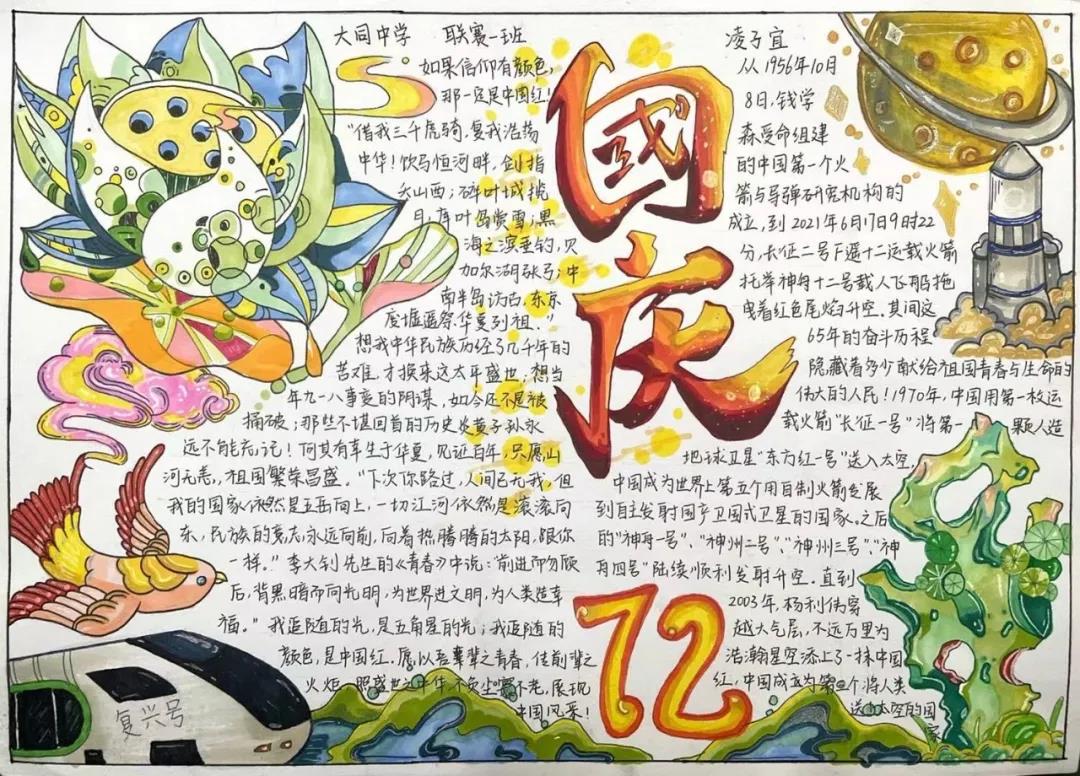 大同中学 联赛一班
凌子宜
国庆
如果信仰有颜色,
那一定是中国红!
“借我三千虎骑,复我浩扬
中华!饮马恒河畔,剑指
天山西;碎叶城揽
月,库叶岛赏雪;黑
海之滨垂钓,贝
加尔湖张弓;中
南半岛访古,东京
废墟遥祭华夏列祖.”
想我中华民族历经了几千年的
苦难,才换来这太平盛世;想当
年九一八事变的阴谋,如今还不是被
捅破;那些不堪回首的历史炎黄子孙永
远不能忘记!何其有幸生于华夏,见证百年,只愿山
河无恙,祖国繁荣昌盛。“下次你路过,人间已无我,但
我的国家依然是五岳向上,一切江河依然是滚滚向
东,民族的意志永远向前,向着热腾腾的太阳,跟你
一样。”李大钊先生的《青春》中说:“前进而勿顾
后,背黑暗而向光明,为世界进文明,为人类造幸
福。”我追随的光,是五角星的光;我追随的
颜色,是中国红。愿以吾辈之青春,佳前辈之
火炬 那盛世之中华,不负 不老,展现
中国风采!
从1956年10月
8日,钱学
森受命组建
的中国第一个火
箭与导弹研究机构的
成立,到2021年6月17日9时22
分,长征二号F遥十二运载火箭
托举神舟十二号载人飞船拖
曳着红色尾焰升空。其间这
65年的奋斗历程
隐藏着多少献给祖国青春与生命的
伟大的人民!1970年,中国用第一枚运
载火箭“长征一号”将第一颗人造
地球卫星“东方红一号”送入太空,
中国成为世界上第五个用自制火箭发展
到自主发射国产卫国式卫星的国家。之后
的“神舟一号”、“神州二号”、“神州三号”、“神
舟四号”陆续顺利发射升空。直到
2003年,杨利伟穿
越大气层,不远万里为
浩瀚星空添上了一抹中国
红,中国成立为第三个将人类
送上太空的国
家
72
复兴号